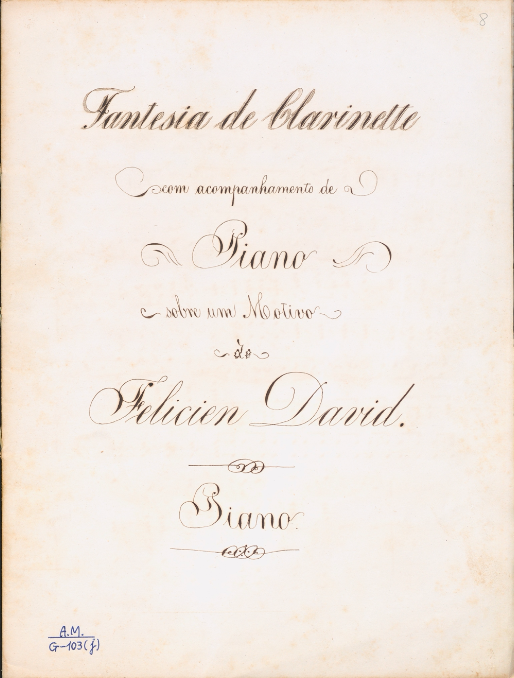 8
Fantesia de Clarinette
com acompanhamento de
Piano
sobre um Motivo
de
Felicien David.
Piano.
A.M.
G-103(f)